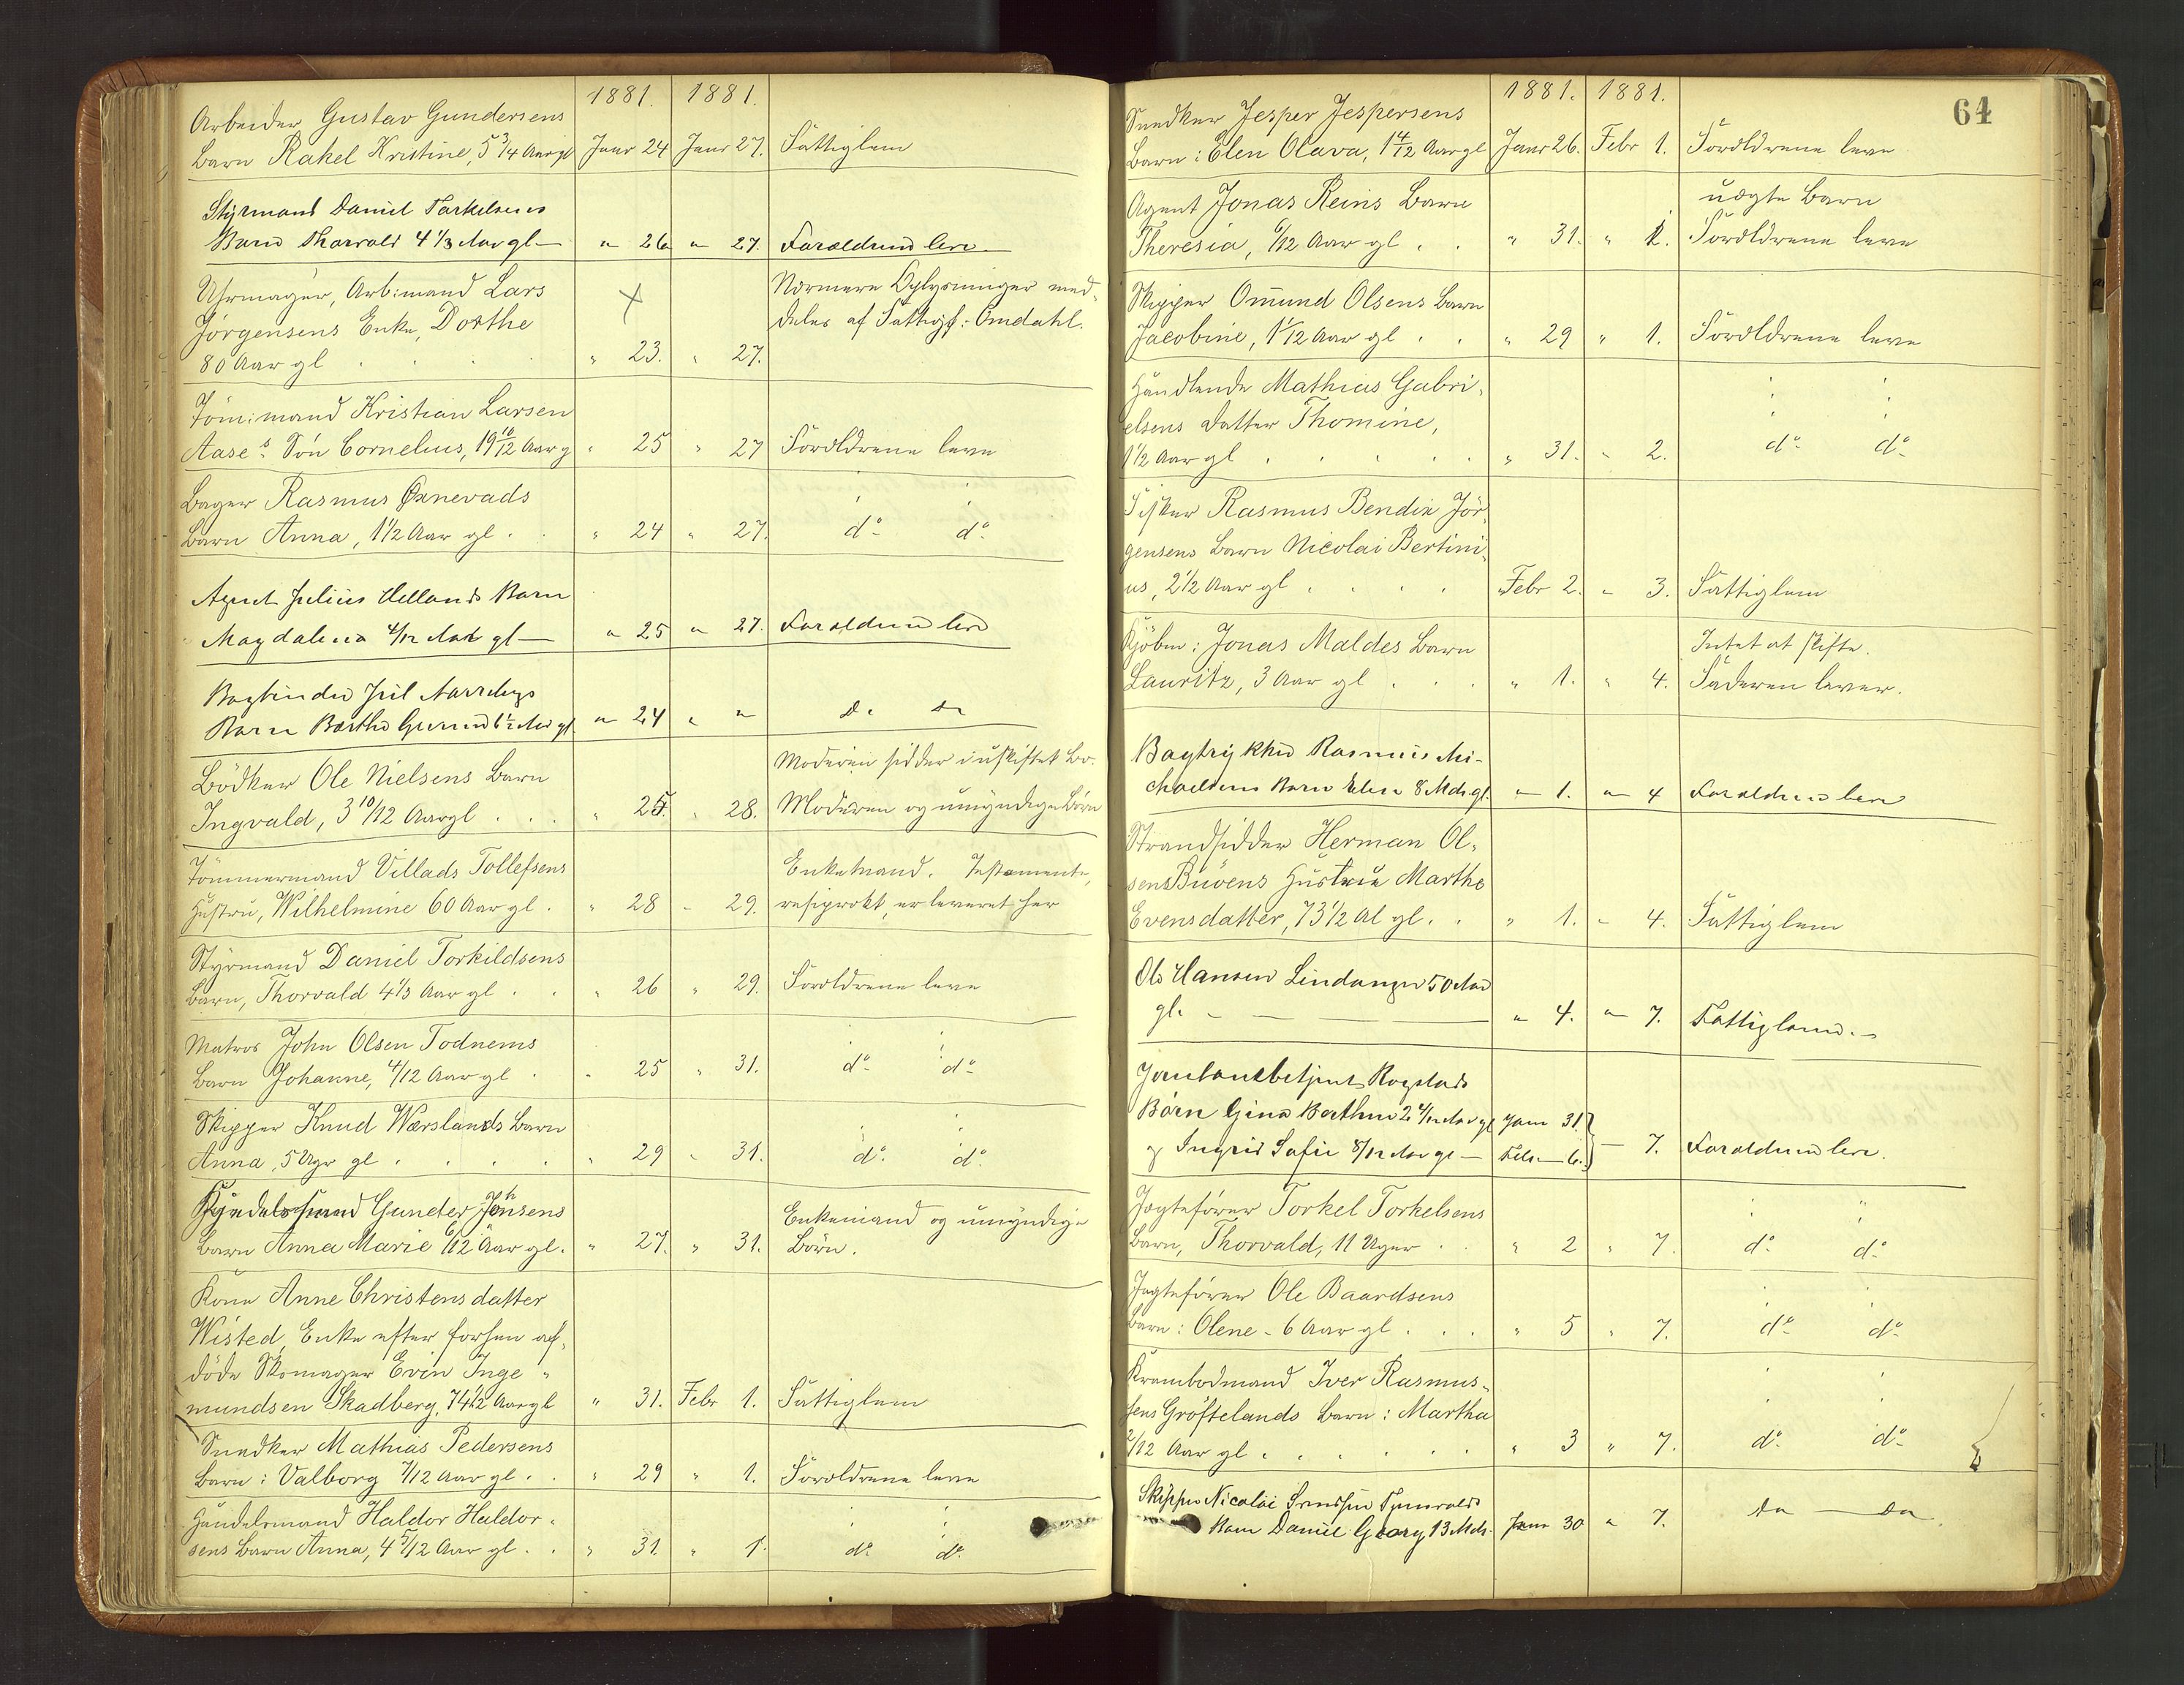 1881. 1881.
Arbeider Gustav Gundersens
Barn Rakel Kristine, 5 3/4 Aargl Janr 24 Janr 27. Fattiglem
Styrmand Daniel Tarkelsens
Barn Thorvald 4 1/3 Aar gl — " 26 " 27. Forældrene leve
Uhrmager, Arb:mand Lars
Jörgensens Enke, Dorthe
80 Aar gl . . . . " 23. " 27.
X Nærmere Oplysninger med-
deles af Fattigf: Omdahl.
Töm:mand Kristian Larsen
Aases Sön Cornelius, 19 10/12 Aar g " 25 " 27 Forældrene leve
Bager Rasmus Øxnevads
Barn Anna, 1 1/2 Aar gl . . " 24 " 27. do do
Agent Julius Hellands Barn
Magdalena 4/12 Aar gl — " 25 " 27. Forældrene leve
Bogbinder Jul
Barn Barthe 6 1/2 Md gl " 24 " " Do Do
Bödker Ole Nielsens Barn
Ingvald, 3 10/12 Aargl . . . " 25. " 28.
Moderen sidder i uskiftet Bo.
Moderen og umyndige Börn
Tömmermand Villads Tollefsens
Hustru, Wilhelmine 60 Aar gl . " 28 - 29.
Enkemand. Testamente,
resiprokt, er leveret her
Styrmand Daniel Torkildsens
Barn, Thorvald 4 1/3 Aar gl . . " 26 " 29. Forældrene leve
Matros John Olsen Todnems
Barn Johanne, 4/12 Aar gl . " 25 " 31. do do
Skipper Knud Wærslands Barn
Anna, 5 Uger gl . . . . " 29 " 31. do do
Gunder Johnsens
Barn Anna Marie 6/12 Aar gl. " 27. " 31.
Enkemand og umyndige
Börn.
Kone Anne Christensdatter
Wisted, Enke efter forhen af-
döde Skomager Evin Inge-
mundsen Skadberg, 74 1/2 Aargl " 31. Febr 1. Fattiglem
Snedker Mathias Pedersens
Barn: Valborg 7/12 Aar gl . . " 29 " 1. Forældrene leve
Handelsmand Haldor Haldor-
sens Barn Anna, 4 5/12 Aar gl . . " 31. " 1. do do
64
1881. 1881.
Snedker Jesper Jespersens
Barn: Elen Olava, 1 4/12 Aargl Janr 26. Febr 1. Forældrene leve
Agent Jonas Reins Barn uægte Barn
Theresia, 6/12 Aar gl . . " 31. " 1. Forældrene leve
Skipper Omund Olsens Barn
Jacobine, 1 1/12 Aar gl . . " 29 " 1. Forældrene leve
Handlende Mathias Gabri-
elsens Datter Thomine,
1 1/2 Aar gl . . . . . " 31. - 2. do do
Fisker Rasmus Bendix Jör-
gensens Barn Nicolai Bertini-
us, 2 1/2 Aar gl . . . . Febr 2. " 3. Fattiglem
Kjöbm: Jonas Maldes Barn Intet at skifte.
Lauritz, 3 Aar gl . . . " 1. " 4. Faderen lever.
Bogtrykker Rasmus Mi-
chaelsens Barn Elen 8 Mdr. gl. " 1. " 4 Forældrene leve
Strandsidder Herman Ol-
sens Buvens Hustru Marthe
Evensdatter, 73 1/2 Al gl. . " 1. - 4. Fattiglem
Ole Hansen Lindanger 50 Aar
gl. - — — — " 4. " 7. Fattiglem. -
Rogstads
Börn Gina Berthine 2 4/12 Aar gl Janr 31.
& Ingrid Sofie 8/12 Aar gl — Febr. — 6. } — 7. Forældrene leve.
Jagtefører Torkel Torkelsens
Barn, Thorvald, 11 Uger . . " 2 " 7. do do
Jagtefører Ole Baardsens
Barn: Olene - 6 Aar gl . . . " 5 " 7. do do
Krambodmand Iver Rasmus-
sens Gröftelands Barn: Martha
2/12 Aar gl . . . . . . " 3 " 7. do do
Skipper Nicolai
Barn Daniel Georg 13 Mdr. Janr 30 " 7. Do — Do